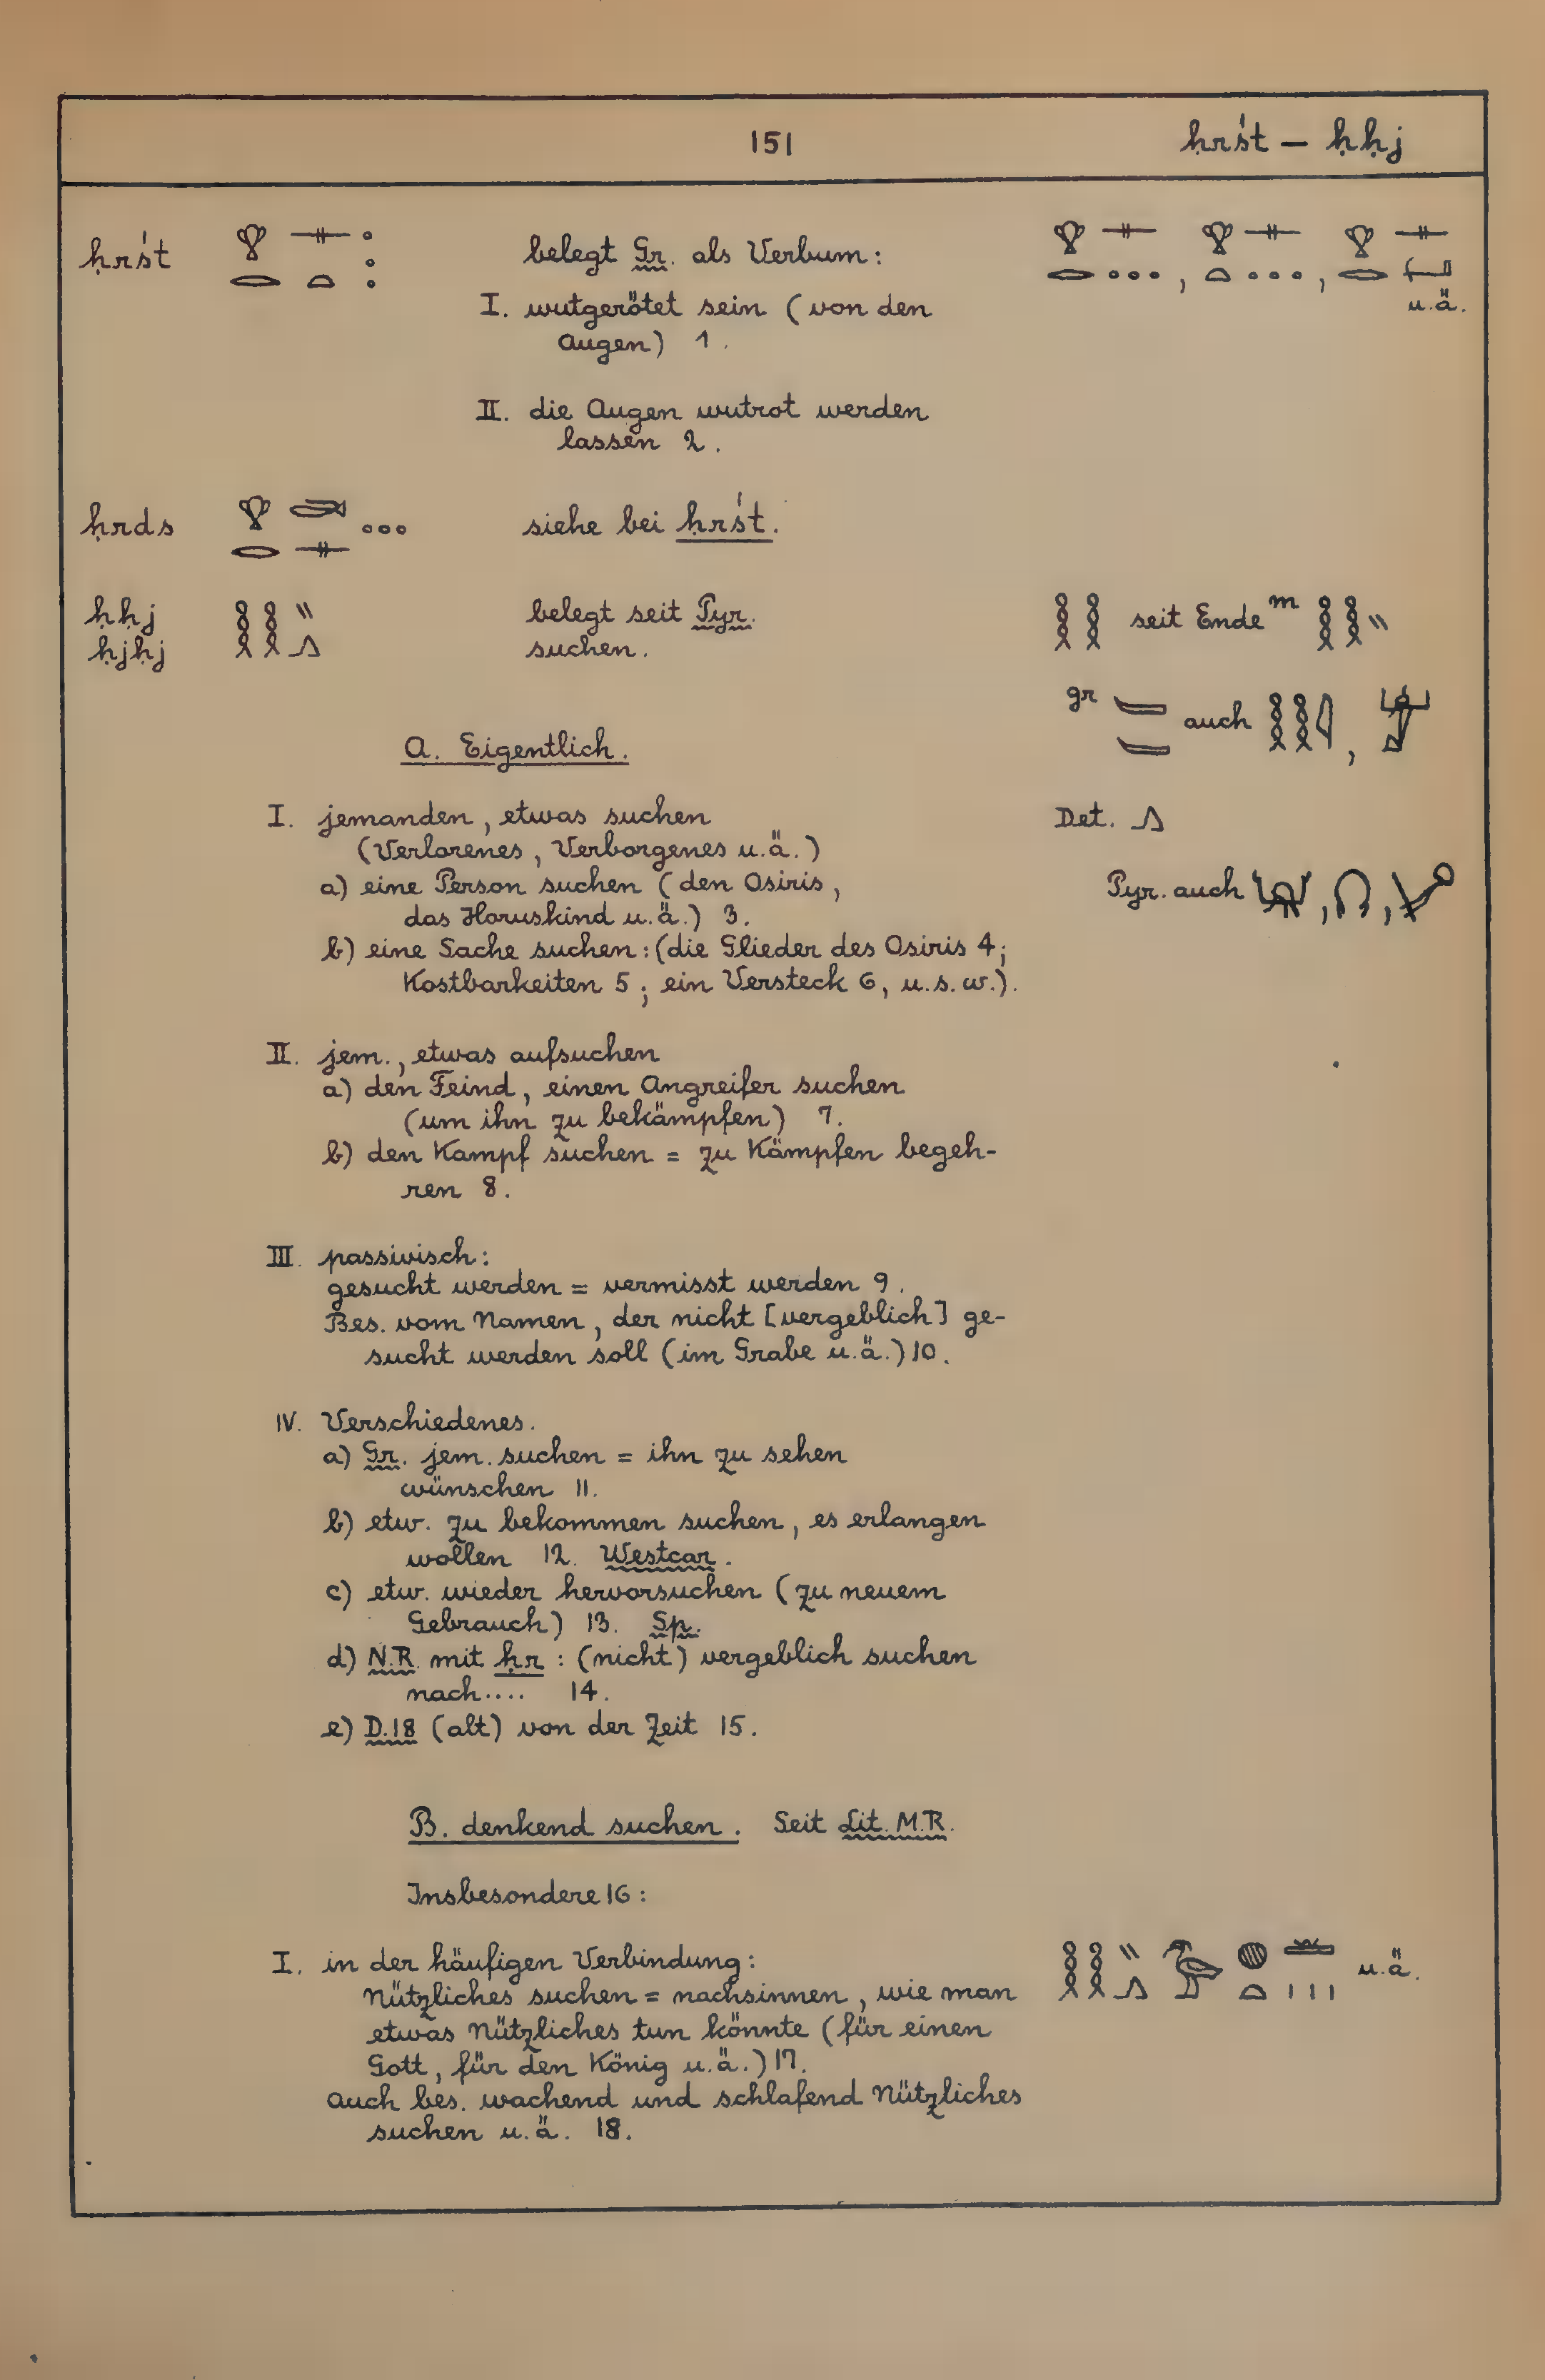 151
ḥrśt – ḥḥj
ḥrśt
belegt Gr. als Verbum:
u.ä.
I. wutgerötet sein (von den
Augen) 1.
II. die Augen wutrot werden
lassen 2.
ḥrds
siehe bei ḥrśt.
ḥḥj
ḥjḥj
belegt seit Pyr.
suchen.
seit Ende m
gr auch
A. Eigentlich.
I. jemanden, etwas suchen
Det.
(Verlorenes, Verborgenes u.ä.)
a) eine Person suchen (den Osiris,
Pyr. auch
das Horuskind u.ä.) 3.
b) eine Sache suchen: (die Glieder des Osiris 4;
Kostbarkeiten 5; ein Versteck 6, u.s.w.).
II. jem., etwas aufsuchen
a) den Feind, einen Angreifer suchen
(um ihn zu bekämpfen) 7.
b) den Kampf suchen = zu Kämpfen begeh-
ren 8.
III. passivisch:
gesucht werden = vermisst werden 9.
Bes. vom Namen, der nicht [vergeblich] ge-
sucht werden soll (im Grabe u.ä.) 10.
IV. Verschiedenes.
a) Gr. jem. suchen = ihn zu sehen
wünschen 11.
b) etw. zu bekommen suchen, es erlangen
wollen 12. Westcar.
c) etw. wieder hervorsuchen (zu neuem
Gebrauch) 13. Sp.
d) N.R. mit ḥr : (nicht) vergeblich suchen
nach.... 14.
e) D.18 (alt) von der Zeit 15.
B. denkend suchen. Seit Lit. M.R.
Insbesondere 16:
I. in der häufigen Verbindung:
u.ä.
Nützliches suchen = nachsinnen, wie man
etwas Nützliches tun könnte (für einen
Gott, für den König u.ä.) 17.
Auch bes. wachend und schlafend Nützliches
suchen u.ä. 18.